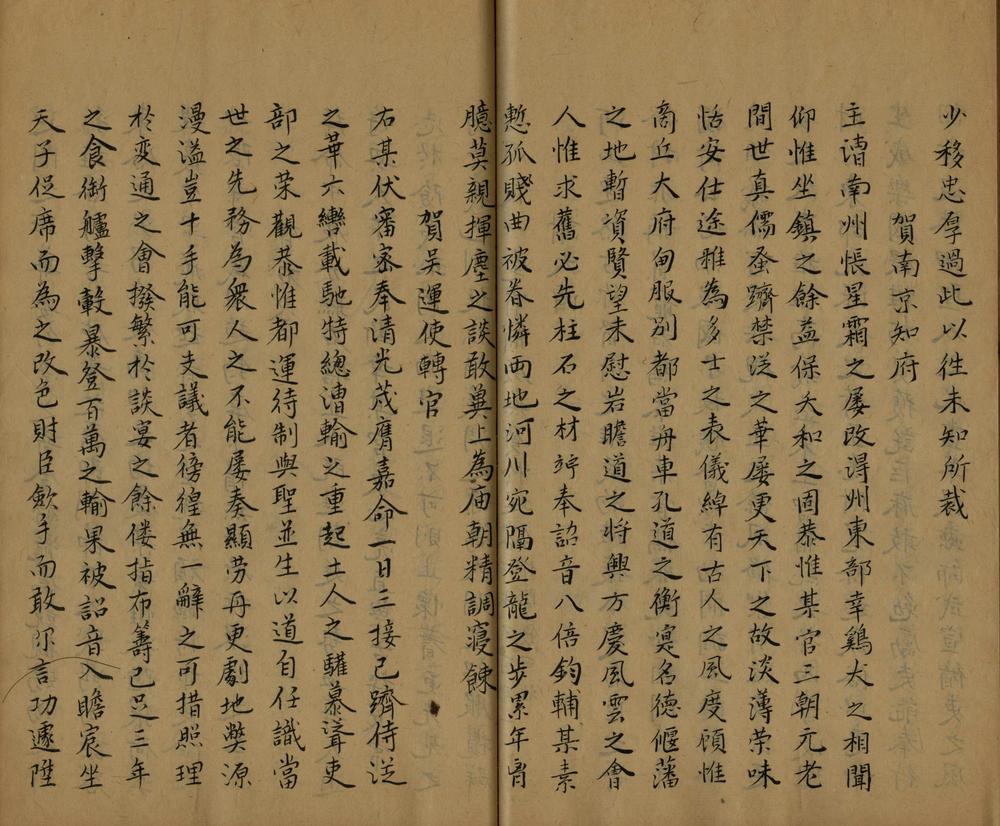 少移忠厚過此以徃未知所裁
賀南京知府
主谞南州悵星霜之屡改淂州東部幸鷄犬之相聞
仰惟坐鎮之餘益保夭和之固恭惟某官三朝元老
間世真儒蚤躋禁迯之華屡更天下之故淡薄荣味
恬安仕途雅為多士之表儀綽有古人之風度顧惟
啇丘大府甸服别都當舟車孔道之衡寔名德偃藩
之地暫資賢望未慰岩瞻道之将興方慶風雲之會
人惟求舊必先柱石之材竚奉詔音八倍鈞輔某素
慙孤賤曲被眷憐両地河川宛隔登龍之步累年胷
臆莫親揮麈之談敢兾上為庙朝精調寢餗
賀吴運使轉官
右某伏審宻奉清光茂膺嘉命一日三接已躋侍迯
之華六轡載馳特總漕輸之重起士人之驩慕聳吏
部之荣觀恭惟都運待制與聖並生以道自任識當
世之先務為衆人之不能屡奏顯劳再更劇地獘源
漫溢豈十手能可支議者徬徨無一辭之可措照理
於変通之會撥繁於談宴之餘偻指布籌已足三年
之食衘艫擊轂暴登百萬之輸果被詔音入瞻宸坐
天子促席而為之改色財臣歛手而敢尔言功遽陞